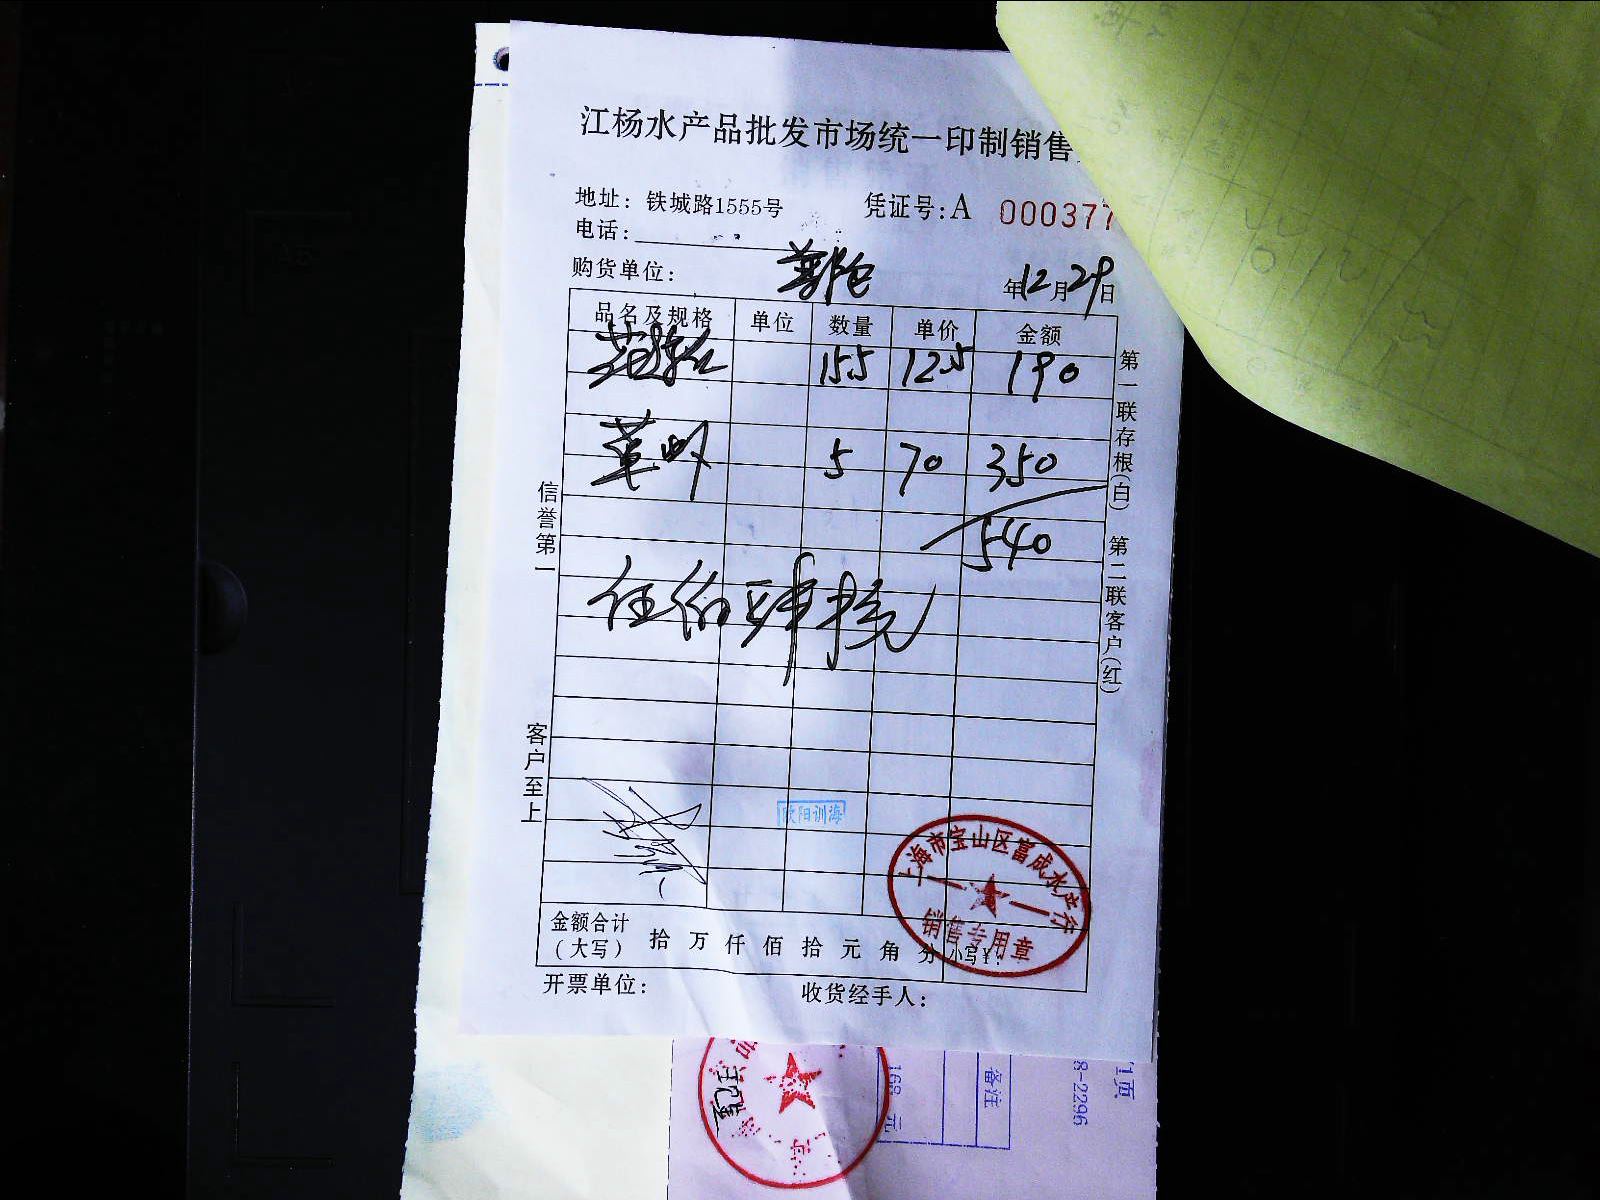 江杨水产品批发市场统一印制销售
地址：铁城路1555号 凭证号：A 000377
电话：
购货单位： 年12月29日
品名及规格 单位 数量 单价 金额
155 125 190
5 70 350
540
伍佰肆拾元
第一联存根(白) 第二联客户(红)
信誉第一
客户至上
欧阳训海
上海市宝山区富成水产行
销售专用章
金额合计
（大写） 拾 万 仟 佰 拾 元 角 分 小写¥：
开票单位： 收货经手人：
168 元
备注
8-2296
1页